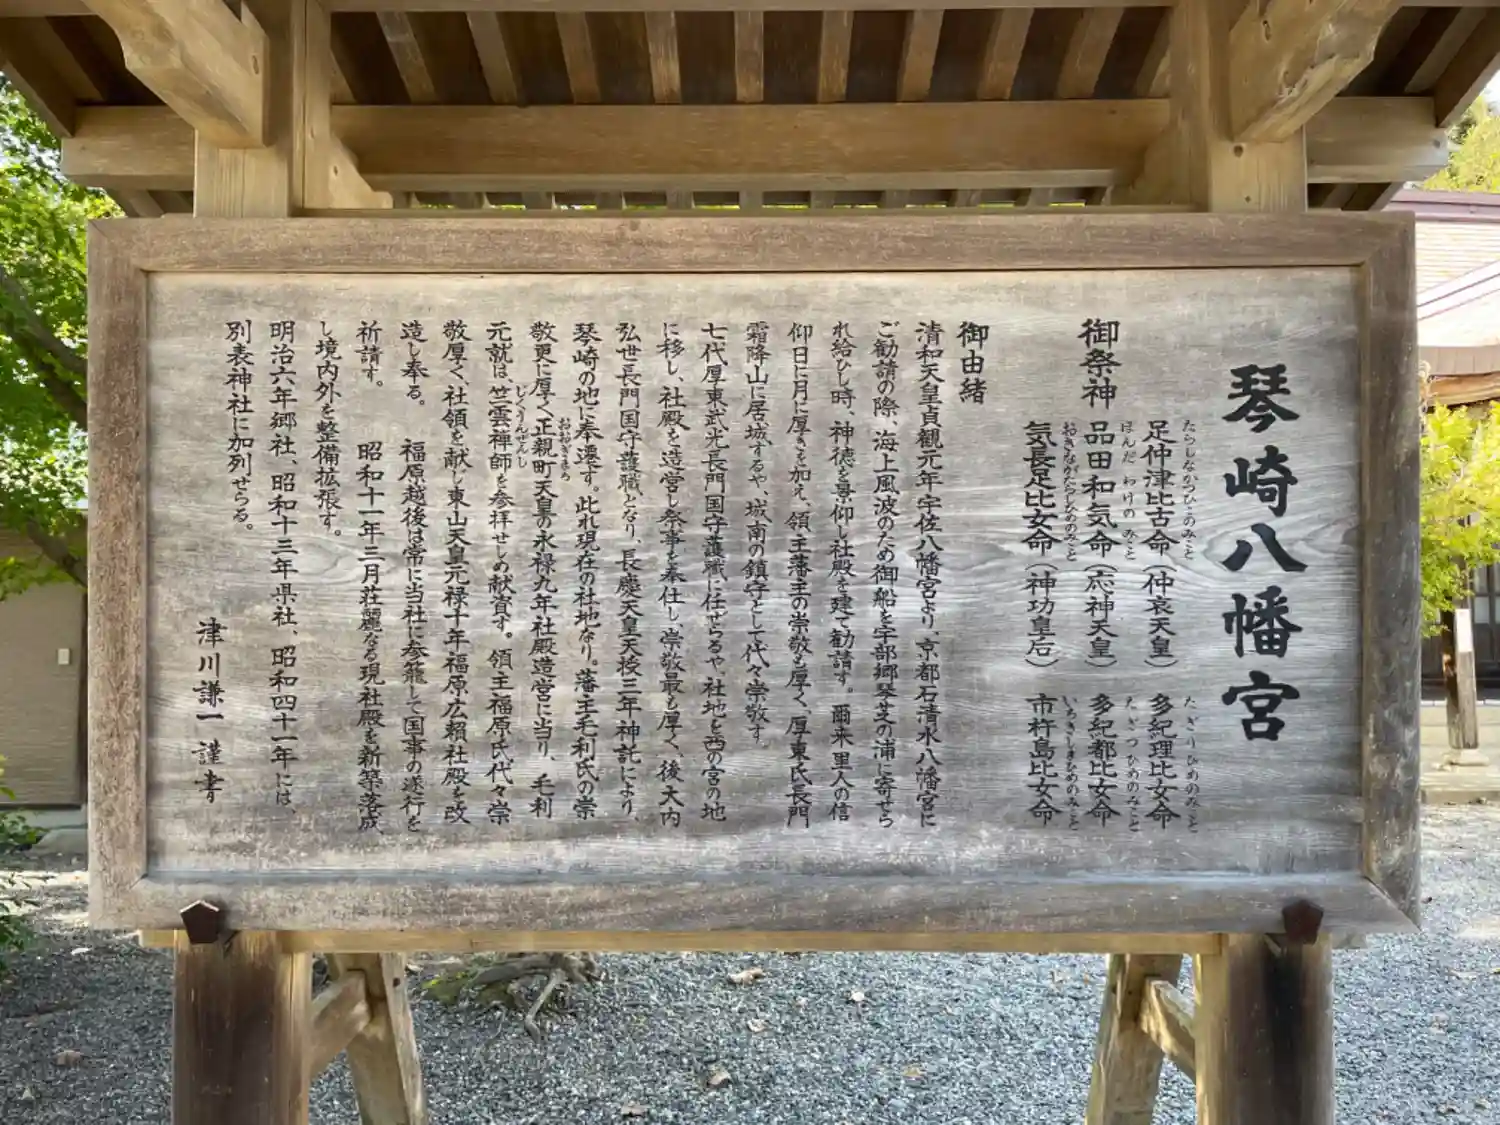 琴崎八幡宮
御祭神
足仲津比古命（仲哀天皇） 多紀理比女命
たらしなかつひこのみこと たぎりひめのみこと
品田和気命（応神天皇） 多紀都比女命
ほんだ わけの みこと たぎつひめのみこと
気長足比女命（神功皇后） 市杵島比女命
おきながたらしひめのみこと いちきしまひめのみこと
御由緒
清和天皇貞観元年宇佐八幡宮より、京都石清水八幡宮に
ご勧請の際、海上風波のため御船を宇部郷琴芝の浦に寄せら
れ給ひし時、神徳を景仰し社殿を建て勧請す。爾来里人の信
仰日に月に厚きを加え、領主藩主の崇敬も厚く、厚東氏長門
霜降山に居城するや、城南の鎮守として代々崇敬す。
七代厚東武光長門国守護職に任せらるや、社地を西の宮の地
に移し、社殿を造営し祭事を奉仕し、崇敬最も厚く、後大内
弘世長門国守護職となり、長慶天皇天授三年神託により、
琴崎の地に奉遷す。此れ現在の社地なり。藩主毛利氏の崇
敬更に厚く正親町天皇の永禄九年社殿造営に当り、毛利
おおぎまち
元就は、竺雲禅師を参拝せしめ献資す。領主福原氏代々崇
じくうんぜんし
敬厚く、社領を献し東山天皇元禄十年福原広頼社殿を改
造し奉る。 福原越後は常に当社に参籠して国事の遂行を
祈請す。 昭和十一年三月荘麗なる現社殿を新築落成
し境内外を整備拡張す。
明治六年郷社、昭和十三年県社、昭和四十一年には、
別表神社に加列せらる。
津川謙一 謹書